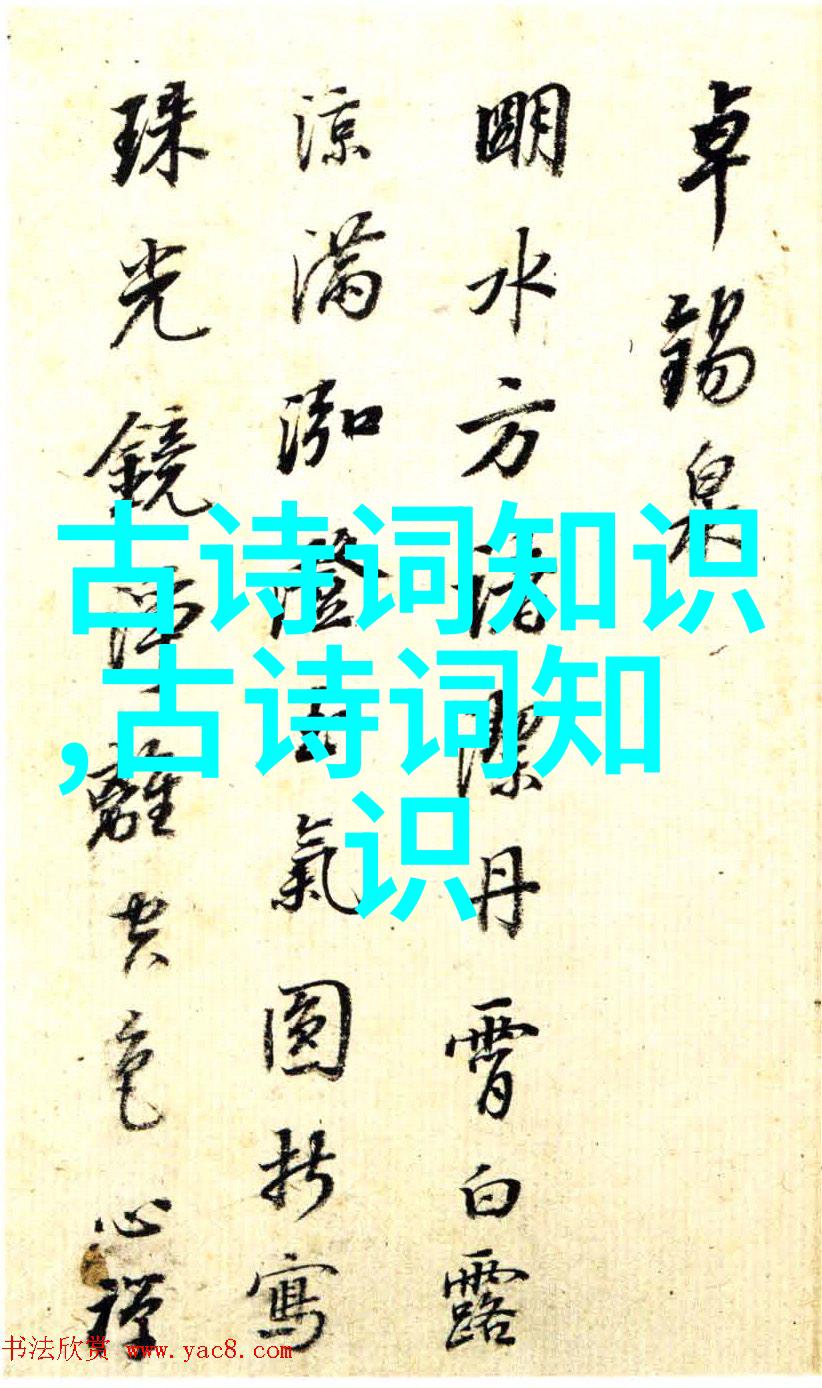 卓錫泉
明水方諸潔丹霄白露
涼滿泓澄一氣圓折寫
珠光鏡
離
色心禪
古诗词知识
,古诗词知
识
书法欣赏 www.yac8.com